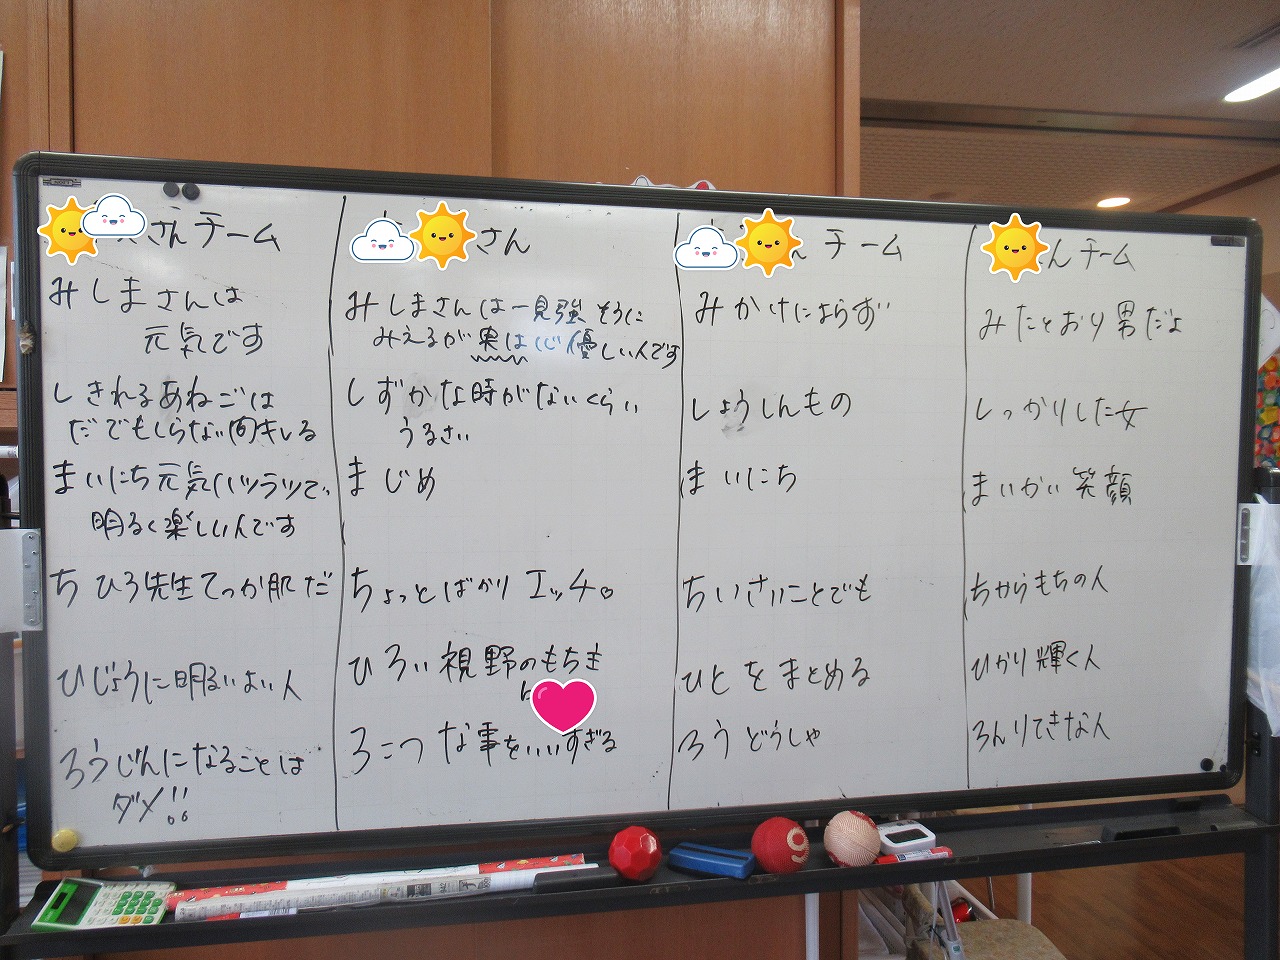 さんチーム
みしまさんは
元気です
しきれるあねごは
だでもしらない向きしる
まいにち元気ハツラツで、
明るく楽しい人です
ちひろ先生てっか肌だ
ひじょうに明るいよい人
ろうじんになることは
ダメ!!
さん
みしまさんは一見強そうに
みえるが実は心優しい人です
しずかな時がないくらい
うるさい
まじめ
ちょっとばかりエッチ♡
ひろい視野のもちき
ろこつな事をいいすぎる
ん チーム
みかけによらず
しょうしんもの
まいにち
ちいさいことでも
ひとをまとめる
ろうどうしゃ
んチーム
みたとおり男だよ
しっかりした女
まいかい笑顔
ちからもちの人
ひかり輝く人
ろんりてきな人